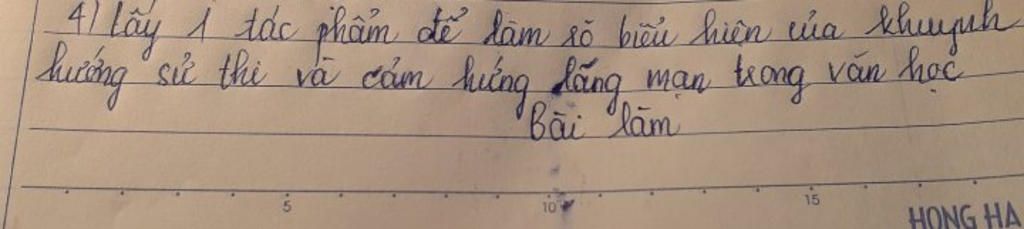 4) Lấy 1 tác phẩm để làm rõ biểu hiện của khuynh
hướng sử thi và cảm hứng lãng mạn trong văn học
Bài làm
5 10 15
HONG HA